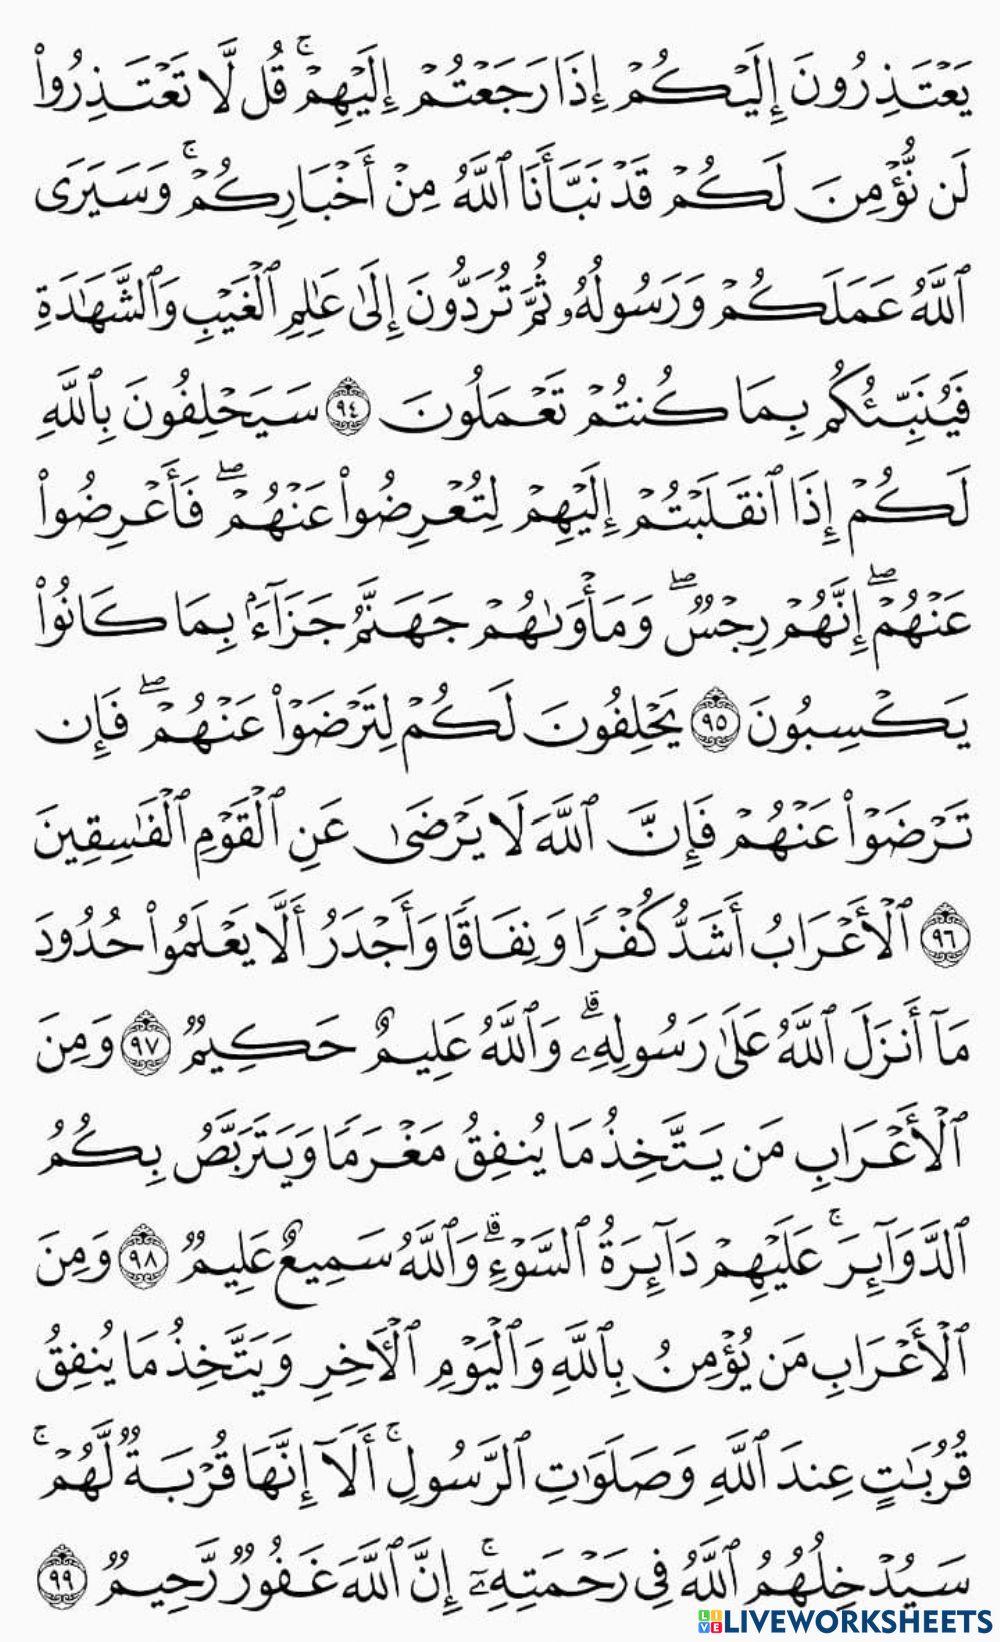 يَعۡتَذِرُونَ إِلَيۡكُمۡ إِذَا رَجَعۡتُمۡ إِلَيۡهِمۡۚ قُل لَّا تَعۡتَذِرُواْ
لَن نُّؤۡمِنَ لَكُمۡ قَدۡ نَبَّأَنَا ٱللَّهُ مِنۡ أَخۡبَارِكُمۡۚ وَسَيَرَى
ٱللَّهُ عَمَلَكُمۡ وَرَسُولُهُۥ ثُمَّ تُرَدُّونَ إِلَىٰ عَٰلِمِ ٱلۡغَيۡبِ وَٱلشَّهَٰدَةِ
فَيُنَبِّئُكُم بِمَا كُنتُمۡ تَعۡمَلُونَ ٩٤ سَيَحۡلِفُونَ بِٱللَّهِ
لَكُمۡ إِذَا ٱنقَلَبۡتُمۡ إِلَيۡهِمۡ لِتُعۡرِضُواْ عَنۡهُمۡۖ فَأَعۡرِضُواْ
عَنۡهُمۡۖ إِنَّهُمۡ رِجۡسٞۖ وَمَأۡوَىٰهُمۡ جَهَنَّمُ جَزَآءَۢ بِمَا كَانُواْ
يَكۡسِبُونَ ٩٥ يَحۡلِفُونَ لَكُمۡ لِتَرۡضَوۡاْ عَنۡهُمۡۖ فَإِن
تَرۡضَوۡاْ عَنۡهُمۡ فَإِنَّ ٱللَّهَ لَا يَرۡضَىٰ عَنِ ٱلۡقَوۡمِ ٱلۡفَٰسِقِينَ
٩٦ ٱلۡأَعۡرَابُ أَشَدُّ كُفۡرٗا وَنِفَاقٗا وَأَجۡدَرُ أَلَّا يَعۡلَمُواْ حُدُودَ
مَآ أَنزَلَ ٱللَّهُ عَلَىٰ رَسُولِهِۦۗ وَٱللَّهُ عَلِيمٌ حَكِيمٞ ٩٧ وَمِنَ
ٱلۡأَعۡرَابِ مَن يَتَّخِذُ مَا يُنفِقُ مَغۡرَمٗا وَيَتَرَبَّصُ بِكُمُ
ٱلدَّوَآئِرَۚ عَلَيۡهِمۡ دَآئِرَةُ ٱلسَّوۡءِۗ وَٱللَّهُ سَمِيعٌ عَلِيمٞ ٩٨ وَمِنَ
ٱلۡأَعۡرَابِ مَن يُؤۡمِنُ بِٱللَّهِ وَٱلۡيَوۡمِ ٱلۡأٓخِرِ وَيَتَّخِذُ مَا يُنفِقُ
قُرُبَٰتٍ عِندَ ٱللَّهِ وَصَلَوَٰتِ ٱلرَّسُولِۚ أَلَآ إِنَّهَا قُرۡبَةٞ لَّهُمۡۚ
سَيُدۡخِلُهُمُ ٱللَّهُ فِي رَحۡمَتِهِۦٓۚ إِنَّ ٱللَّهَ غَفُورٞ رَّحِيمٞ ٩٩
LIVEWORKSHEETS